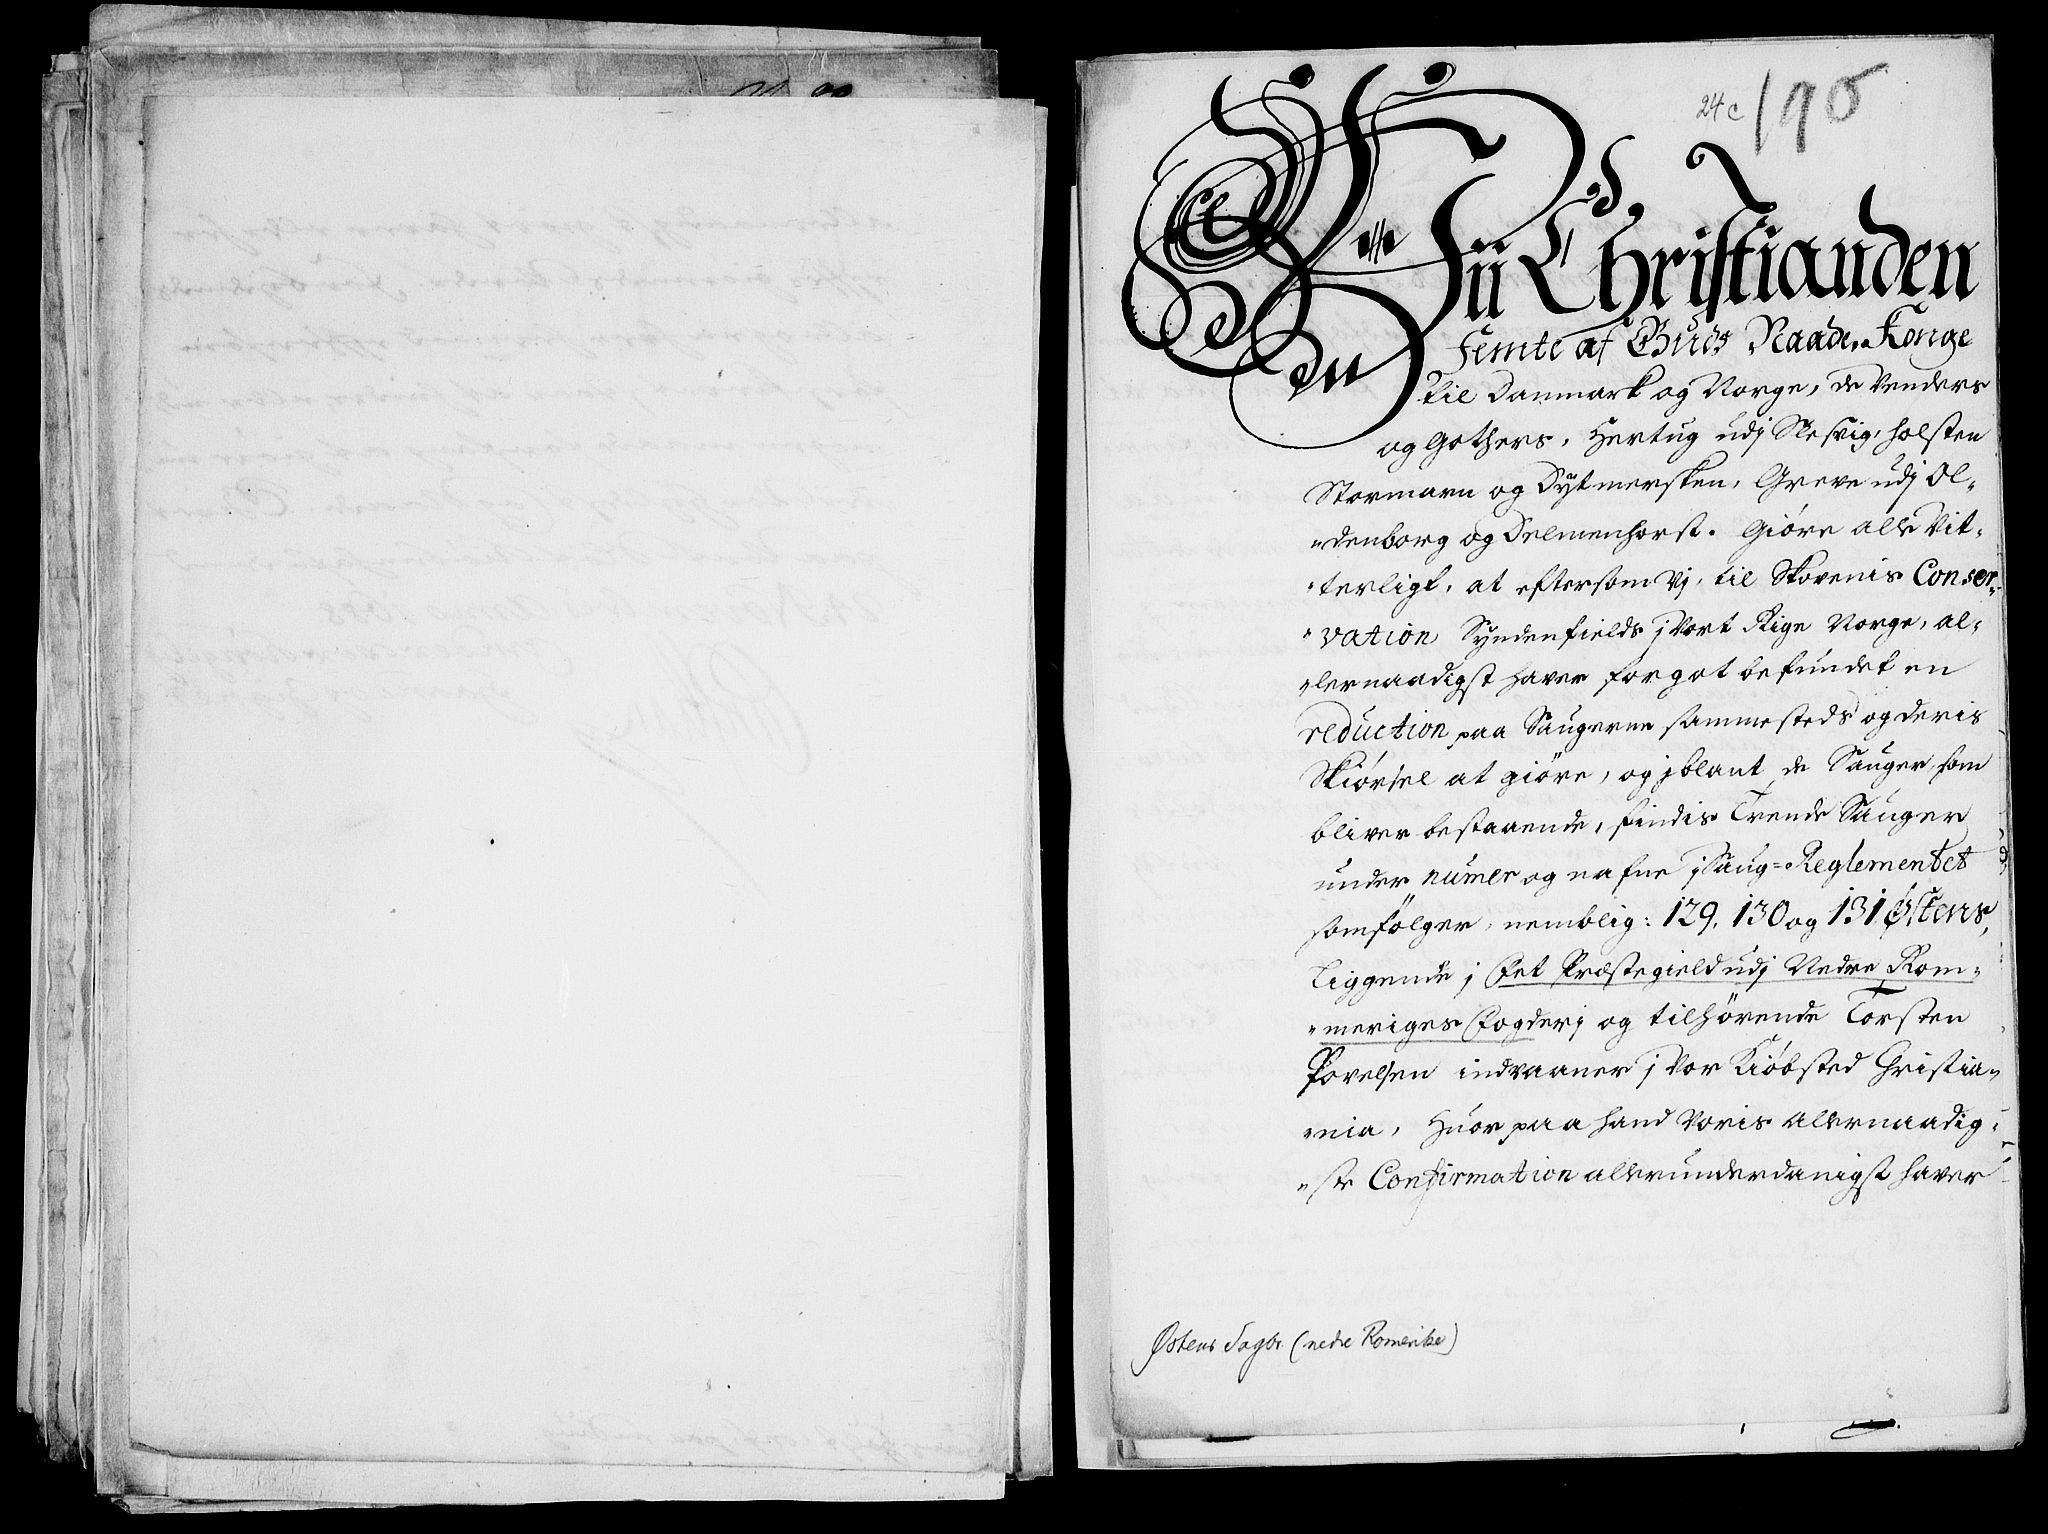 24c 195
Wii Christian den
Femte af Guds Naade, Konge
til Danmark og Norge, de Venders
og Gothers, Hertug udj Slesvig, Holsten
Stormarn og Dytmersken, Greve udj Ol„
„denborg og Delmenhorst. Giöre alle Vit„
„terligt, at eftersom Vj, til Skovenis Conser„
„vation Syndenfields j Vort Rige Norge, al„
„lernaadigst haver forgot befundet en
reduction paa Saugerne sammesteds og deris
Skiörsel at giöre, og jblant de Sauger, som
bliver bestaaende, findis Trende Sauger
under numer og nafne j Saug=Reglementet
som fölger, nemblig: 129, 130 og 131 Østens,
Liggende j Fet Præstegield udj Nedre Rom„
„meriges Fogderj og tilhörende Torsten
Povelsen indvaaner j Vor Kiöbsted Christia„
„nia, Huor paa hand Voris Allernaadig„
„ste Confirmation allerunderdanigst haver
Østens Sagbr. (nedre Romerike)